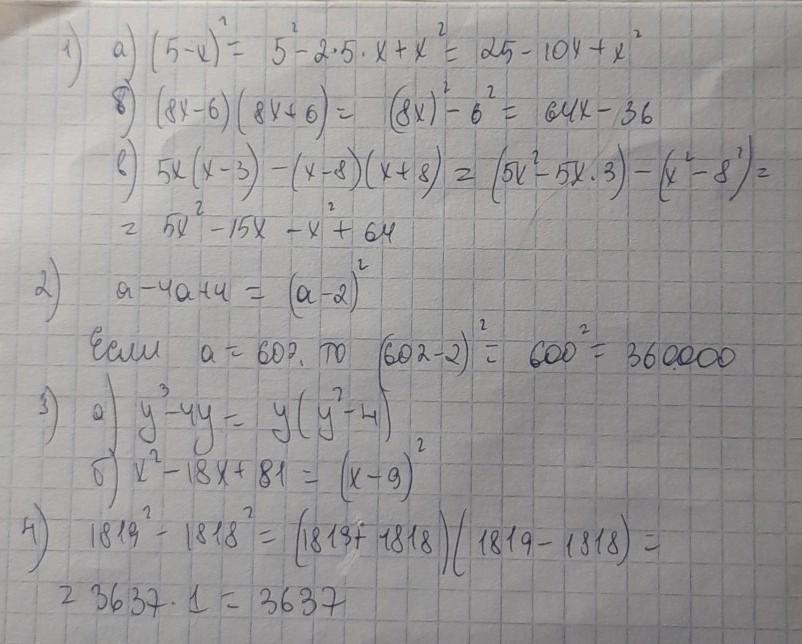 1) а) (5-x)² = 5² - 2·5·x + x² = 25 - 10x + x²
б) (8x-6)(8x+6) = (8x)² - 6² = 64x - 36
в) 5x(x-3) - (x-8)(x+8) = (5x² - 5x·3) - (x² - 8²) =
= 5x² - 15x - x² + 64
2) a - 4a + 4 = (a-2)²
Если a = 602, то (602-2)² = 600² = 360000
3) а) y³ - 4y = y(y² - 4)
б) x² - 18x + 81 = (x-9)²
4) 1819² - 1818² = (1819 + 1818)(1819 - 1818) =
= 3637·1 = 3637